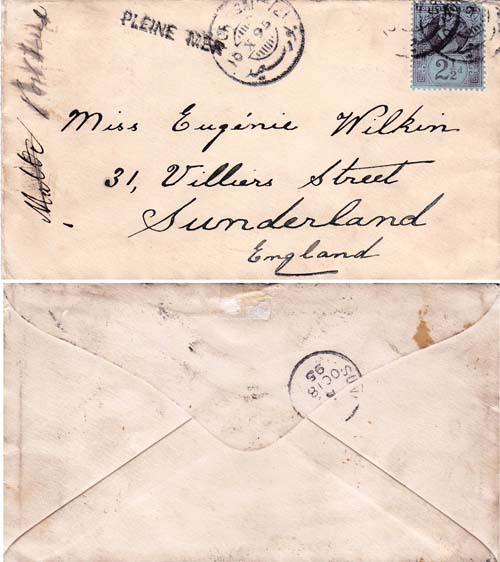 PLEINE MER
10 X 95
2½d
Miss Eugénie Wilkin
31, Villiers Street
Sunderland
England
OC 18
95